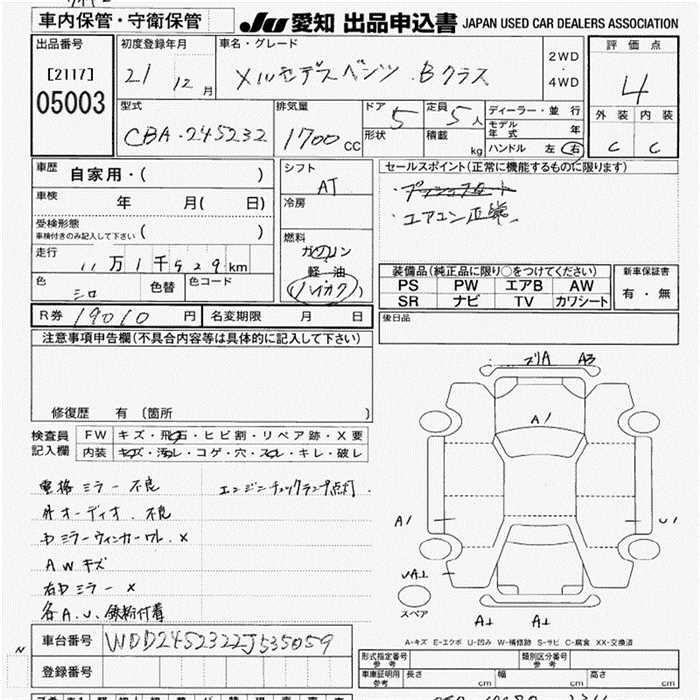 車内保管・守衛保管
JU 愛知 出品申込書 JAPAN USED CAR DEALERS ASSOCIATION
出品番号
[2117]
05003
初度登録年月
21 12月
車名・グレード
メルセデスベンツ Bクラス
2WD
・
4WD
評価点
4
外装 内装
C C
型式
CBA-245232
排気量
1700cc
ドア 5
形状
定員 5人
積載 kg
ディーラー・並行
モデル年式 年
ハンドル 左 右
車歴
自家用・( )
車検
年 月( 日)
受検形態
車検付きのみ記入して下さい ( )
走行
11万1千529km
色
シロ
色替
色コード
シフト
AT
冷房
燃料
ガソリン
軽油
(ハイオク)
セールスポイント(正常に機能するものに限ります)
・プッシュスタート
・エアコン正常
装備品(純正品に限り○をつけてください)
PS PW エアB AW
SR ナビ TV カワシート
新車保証書
有・無
R券 19010円
名変期限 月 日
後日品
注意事項申告欄(不具合内容等は具体的に記入して下さい)
修復歴 有 〔箇所 〕
検査員
記入欄
FW キズ・飛石・ヒビ割・リペア跡・X要
内装 キズ・汚レ・コゲ・穴・スレ・キレ・破レ
電格ミラー不良
エンジンチェックランプ点灯
外オーディオ不良
ミラーウィンカーワレ X
AWキズ
右ミラー X
各A.U、鉄粉付着
A3
A1
A1
U1
スペア
A-キズ E-エクボ U-凹み W-補修跡 S-サビ C-腐食 XX-交換済
車台番号 WDD2452322J535059
登録番号
形式指定番号
参考
類別区分番号
参考
車庫証明用
参考
長さ cm
幅 cm
高さ cm